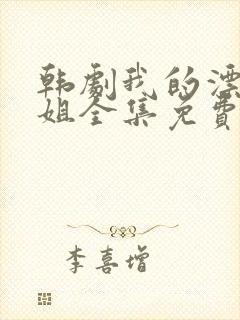 韩劇我的漂
姐全集免費
李喜增